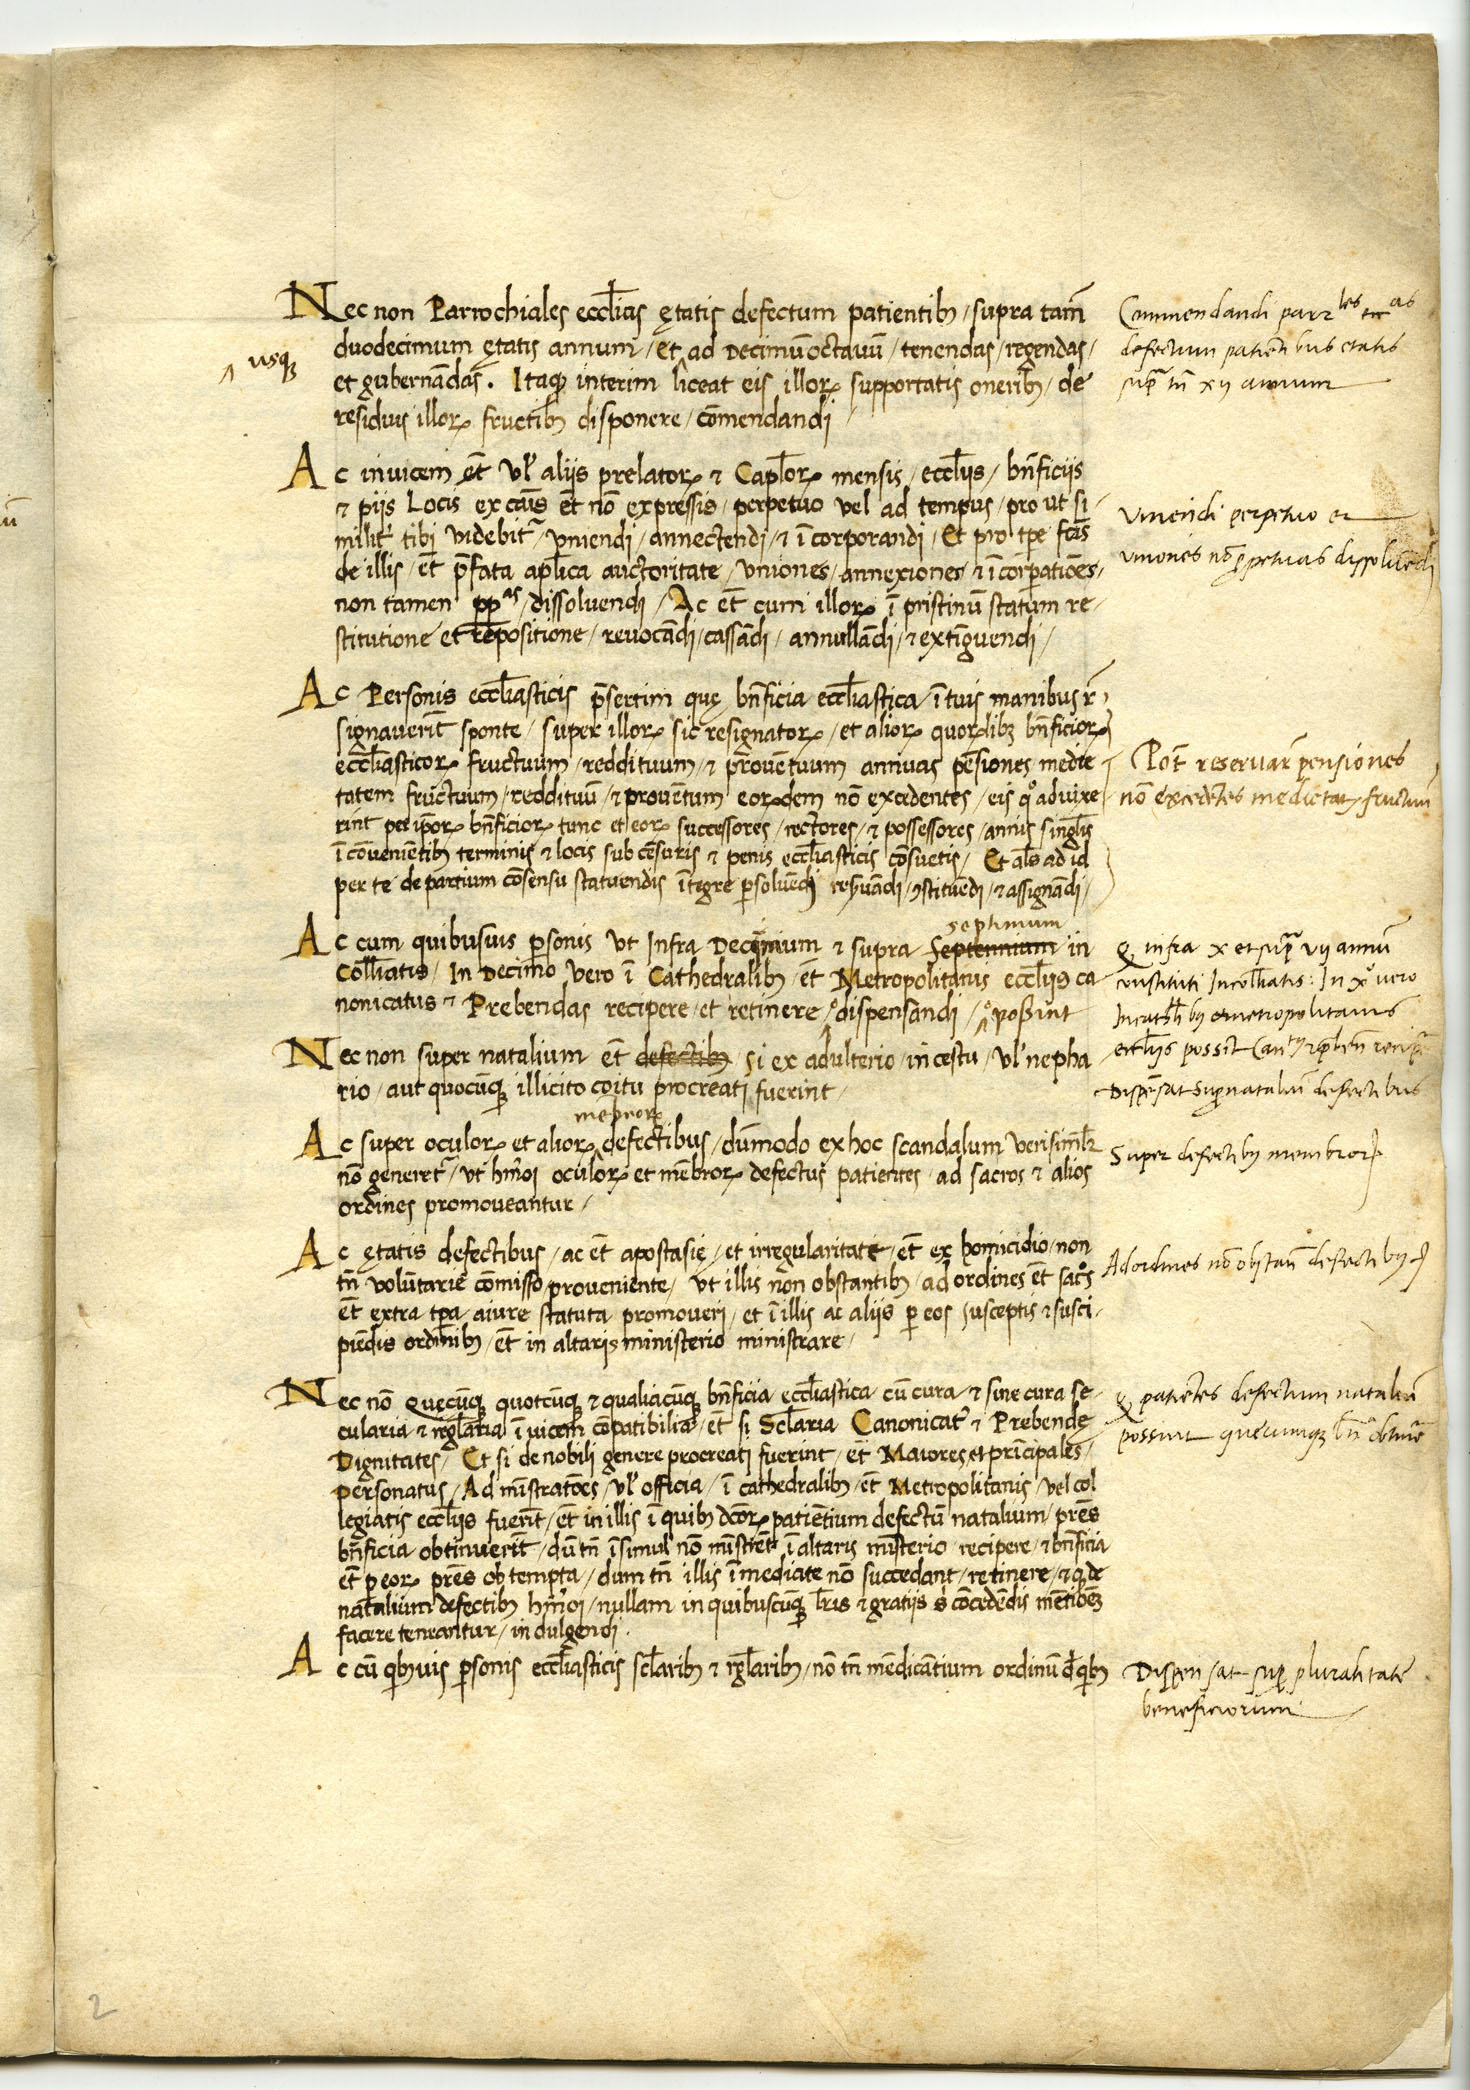 Nec non Parrochiales eccl̄ias ętatis defectum patientibꝫ / supra tam̄
duodecimum ętatis annum / Et ad Decimū octauū / tenendas / regendas /
usqꝫ
et gubernādas. Itaqꝫ interim liceat eis illoꝝ supportatis oneribꝫ / de
residuis illoꝝ fructibꝫ disponere / cōmendandi /
Commendandi parr les ecc as
defectum patiētibus etatis
supͣ tn̄ xij annum
Ac inuicem et̄ ul̓ aliis prelatoꝝ ⁊ Capl̄oꝝ mensis / eccl̄iis / bn̄ficiis
⁊ piis Locis ex cāis et̄ nō expressis / perpetuo vel ad tempus / pro ut si-
milit᷑ tibi videbit᷑ / vniendi / annectendi / ⁊ ī corporandi / Et pro tpe fc̄as
de illis / et̄ p̄fata apl̄ica auctoritate / Vniones / annexiones ⁊ īcorpatiōes /
non tamen pp as / dissoluendi / Ac et̄ cum illoꝝ ī pristinū statum re-
stitutione et repositione / reuocādi / cassādi / annullādi / ⁊ extīguendi /
Vniendi perpetuo et
vniones nō ꝑpetuas dissoluēdi
Ac Personis eccl̄iasticis p̄sertim quę bn̄ficia eccl̄iastica / ī tuis manibus r̄-
signauerīt sponte / super illoꝝ sic resignatoꝝ / et alioꝝ quoꝝlibꝫ bn̄ficioꝝ
eccl̄iasticoꝝ fructuum / reddituum / ⁊ prouētuum annuas pēsiones medie
tatem fructuum / reddituū / ⁊ prouētum eoꝝdem nō excedentes / eis qͦ aduixe
rint per ip̄oꝝ bn̄ficioꝝ tunc et eoꝝ successores / rectores / ⁊ possessores / annis singl̄is
ī cōuenientibꝫ terminis ⁊ locis sub cēsuris ⁊ penis eccl̄iasticis cōsuetis / Et al̄s ad id
per te de partium cōsensu statuendis ītegre ꝑsoluēdi reẜuādi / ꝯstituēdi / ⁊ assignādi /
Pot̄ reseruar̄ pensiones
nō excedētes medietatꝫ fructuū
Ac cum quibusuis ꝑsonis ut Infra Decimum ⁊ supra Septennium septimum in
Coll̄iatis / In Decimo vero ī Cathedralibꝫ / et̄ Metropolitanis eccl̄iis ca
nonicatus ⁊ Prebendas recipere / et retinere / dispensandi / poßint
infra x et supͣ vij annū
constituti In coll̄iatis: In xͦ uero
In cathl̄ibꝫ et metropolitanis
eccl̄iis possīt
Nec non super natalium et̄ defectibꝫ si ex adulterio / incestu / ul̓ nepha
rio / aut quocūqꝫ illicito coitu procreati fuerint /
Dispēsat super natalium defectibus
Ac super oculoꝝ et alioꝝ mēbroꝝ defectibus / dūmodo ex hoc scandalum verisiml̄r
nō generet᷑ / ut hm̄oi oculoꝝ et mēbroꝝ defectus patientes / ad sacros ⁊ alios
ordines promoueantur /
Super defectibꝫ membroꝝ
Ac ętatis defectibus / ac et̄ apostasię / et irregularitate / et̄ ex homicidio / non
tn̄ volūtarie cōmisso / proueniente / ut illis non obstantibꝫ / ad ordines et̄ sacͦs
et̄ extra tp̄a a iure statuta promoueri / et ī illis ac aliis ꝑ eos susceptis ⁊ susci-
piēdis ordinibꝫ / et̄ in altaris ministerio ministrare /
Ad ordines nō obstan̄ defectibꝫ
Nec nō Quęcūqꝫ quotcūqꝫ ⁊ qualiacūqꝫ bn̄ficia eccl̄iastica cū cura ⁊ sine cura se-
cularia ⁊ regl̄aria ī uicem cōpatibilia / et̄ si Scl̄aria Canonicat᷑ ⁊ Prebende
Dignitates / Et si de nobili genere procreati fuerint / et̄ Maiores et prīcipales /
personatus / Ad mīstratōes / ul̓ officia / ī cathedralibꝫ / et̄ Metropolitanis / vel col
legiatis eccl̄iis fuerīt / et̄ in illis ī quibꝫ dc̄oꝝ patiētium defectū natalium / pr̄es
bn̄ficia obtinuerīt / dū tn̄ ī simul nō mīstrēt ī altaris mīsterio / recipere / ⁊ bn̄ficia
et̄ ꝑ eoꝝ pr̄es obtempta / dum tn̄ illis īmediate nō succedant / retinere / ⁊ qꝫ de
natalium defectibꝫ hm̄oi / nullam in quibuscūqꝫ lr̄is ⁊ gratiis s̄ cōcedēdis mētiōeꝫ
facere teneantur / indulgendi.
patiētes defectum nataliū
possint quecumqꝫ bn̄ᵃ obtinē
Ac cū qͥbꝫuis ꝑsonis eccl̄iasticis scl̄aribꝫ ⁊ rgl̄aribꝫ / nō tn̄ mēdicātium ordinū
Dispensat sup̲ pluralitate
beneficiorum
2